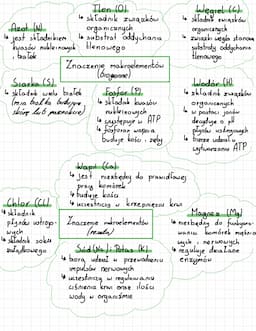 Tlen (O)
↳ składnik związków
organicznych
↳ substrat oddychania
tlenowego
Węgiel (C)
↳ składnik związków
organicznych
↳ związki węgla stanowią
substraty oddychania
tlenowego
Azot (N)
↳ jest składnikiem
kwasów nukleinowych
i białek
Znaczenie makroelementów
(biogenne)
Siarka (S)
↳ składnik wielu białek
(ma białka budujące
skórę lub paznokcie)
Fosfor (P)
↳ składnik kwasów
nukleinowych
↳ występuje w ATP
↳ fosforan wapnia
buduje kości i zęby
Wodór (H)
↳ składnik związków
organicznych
↳ w postaci jonów
decyduje o pH
płynów ustrojowych
↳ bierze udział w
wytwarzaniu ATP
Wapń (Ca)
↳ jest niezbędny do prawidłowej
pracy komórek
↳ buduje kości
↳ uczestniczy w krzepnięciu krwi
Chlor (Cl)
↳ składnik
płynów ustrojo-
wych
↳ składnik soku
żołądkowego
Znaczenie makroelementów
(reszta)
Magnez (Mg)
↳ niezbędny do funkcjono-
wania komórek mięśnio-
wych i nerwowych
↳ reguluje działanie
enzymów
Sód (Na) i Potas (K)
↳ biorą udział w przewodzeniu
impulsów nerwowych
↳ uczestniczą w regulowaniu
ciśnienia krwi oraz ilości
wody w organizmie